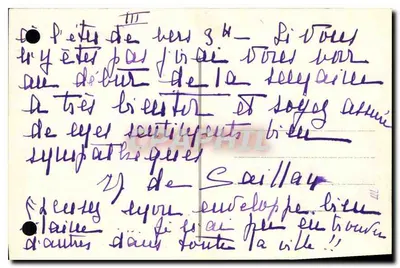 III
à l'étude vers 9h — Si vous
n'y êtes pas j'irai vous voir
au début de la semaine
A très bientôt et soyez assuré
de mes sentiments bien
sympathiques
de Saillay
Excusez mon enveloppe bien
... si j'ai pu en trouver
d'autres dans toute la ville !!